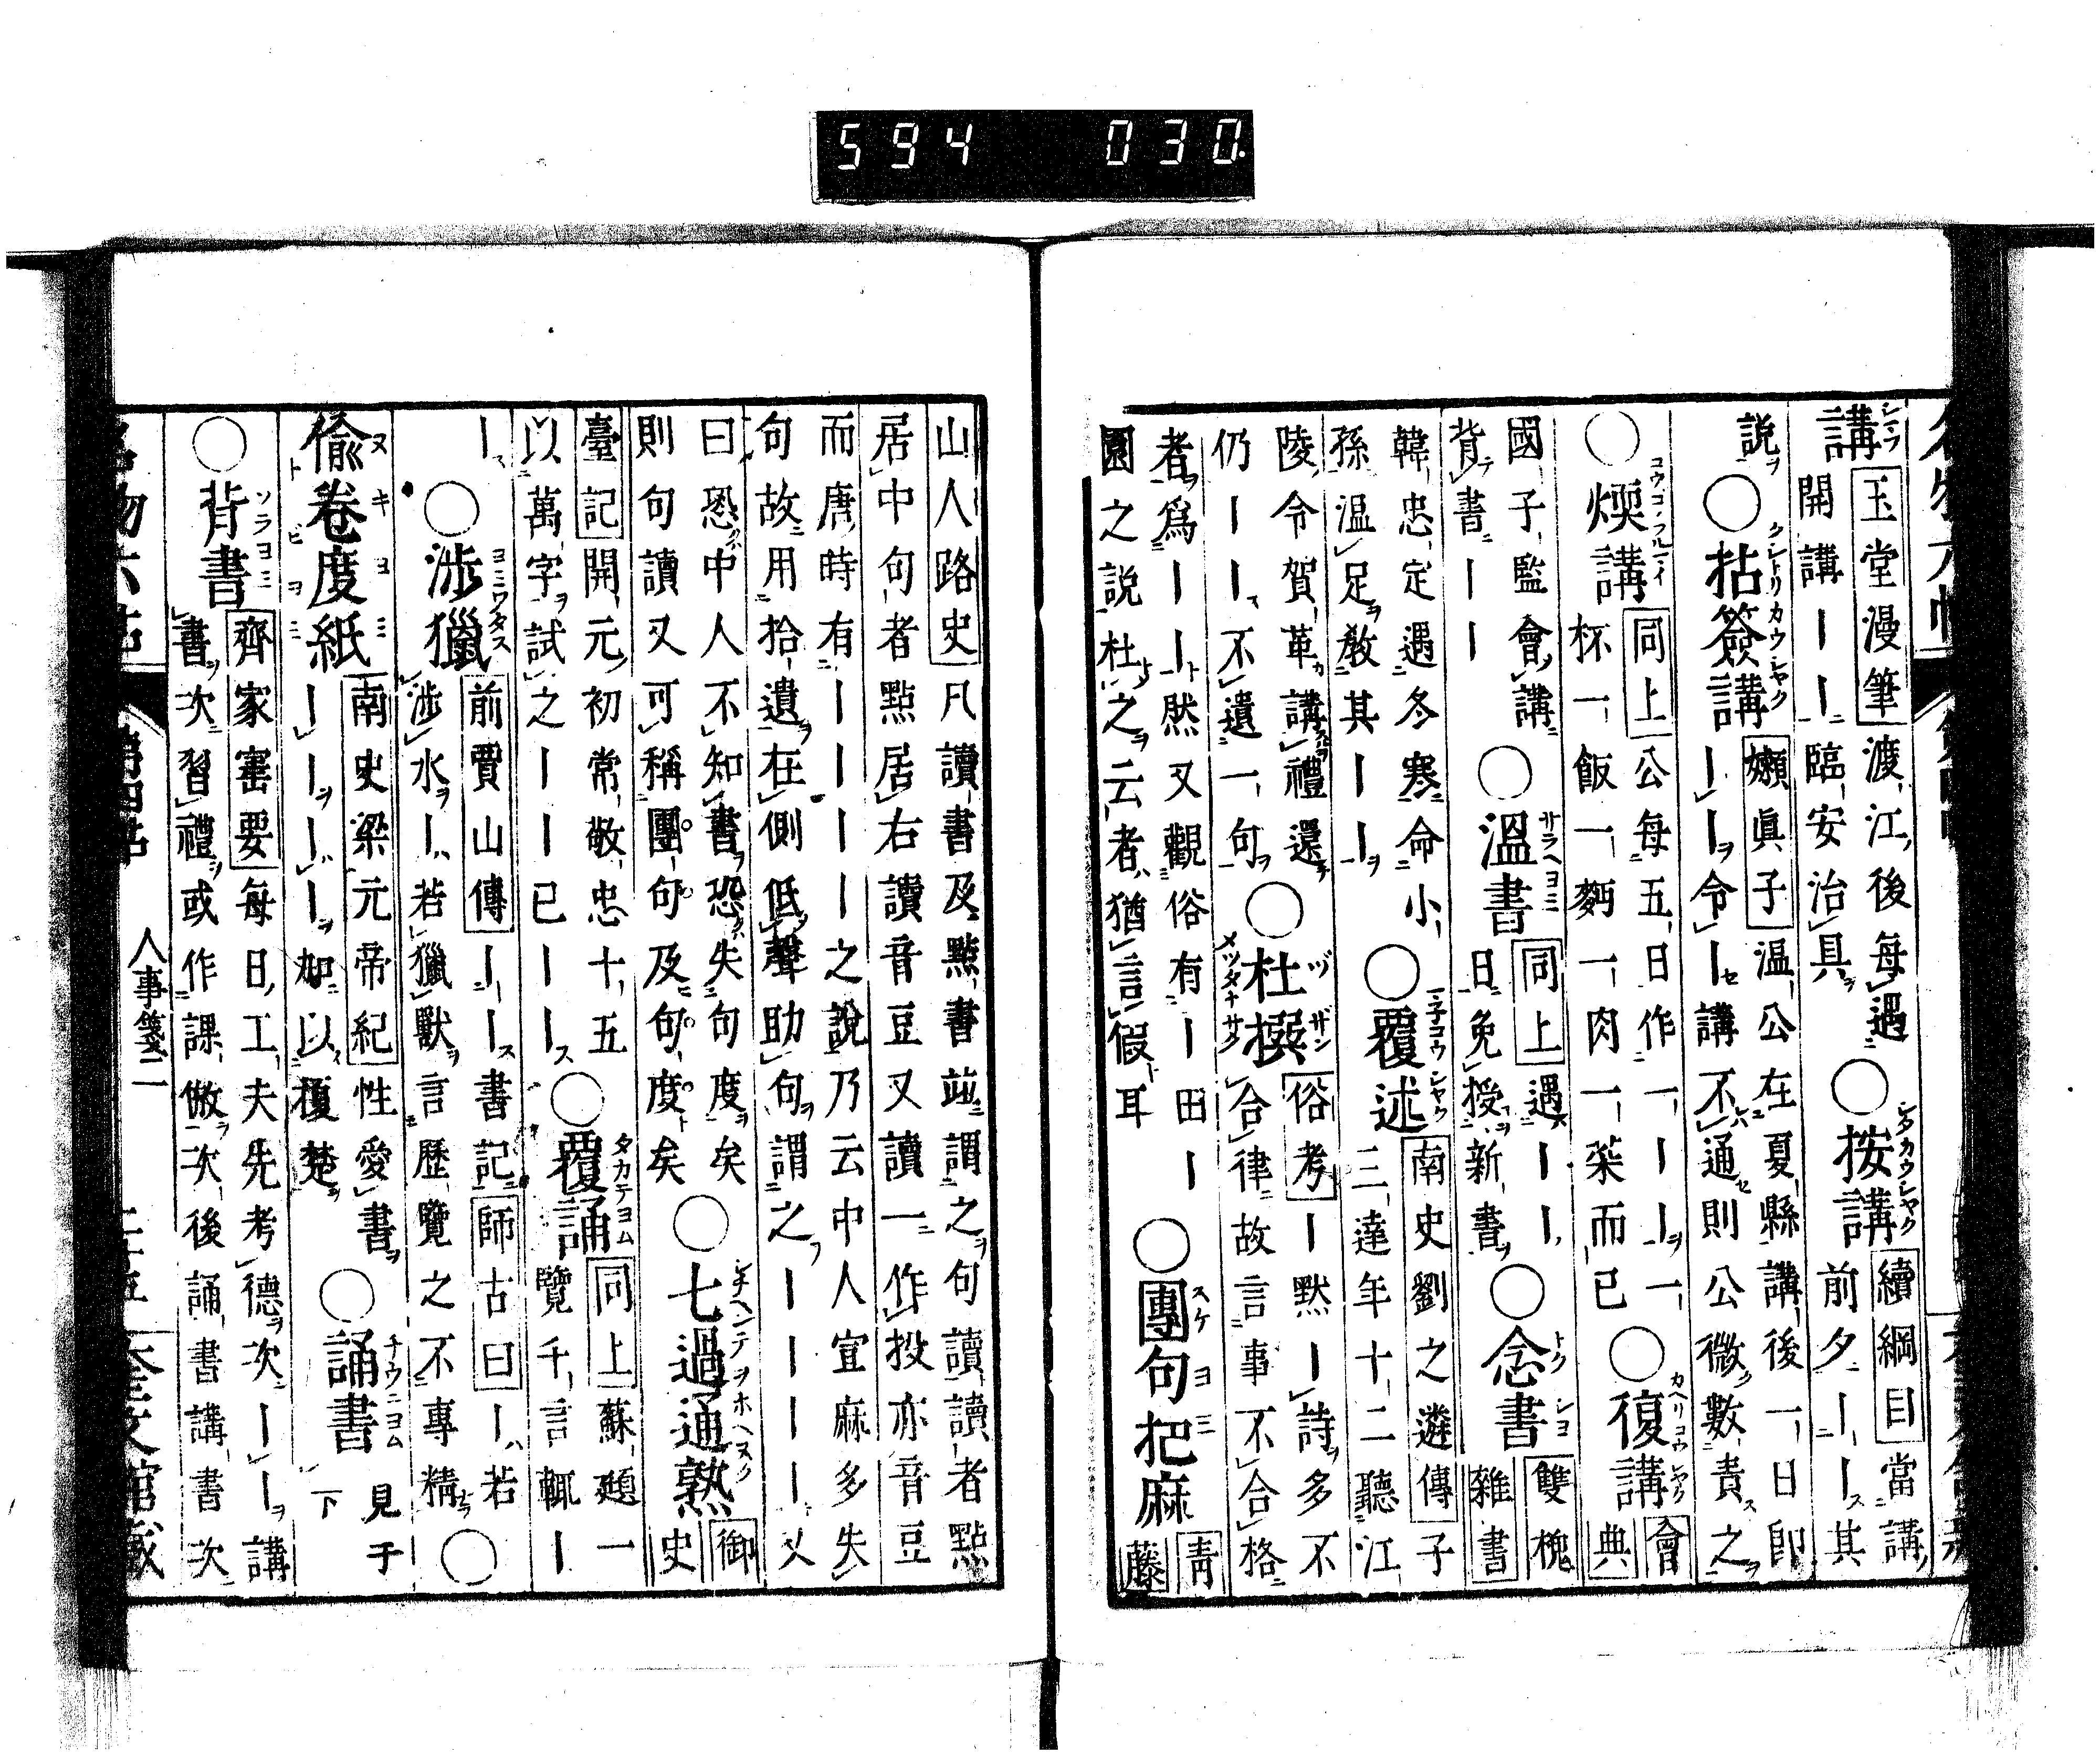 講
玉堂漫筆渡江後每遇
開講ーー臨安治具
○按講
續綱目當講
前夕ーー其
說
○拈簽講
嬾眞子溫公在夏縣講後一日卽
ーー令ー講不通則公微數責之
○煗講
同上公每五日作一ーー一
杯一飯一麪一肉一菜而已
○復講
會
典
國子監會講
背書ーー
○溫書
同上遇ーー
日免授新書
○念書
雙槐
雜書
韓忠定遇冬寒命小
孫溫足教其ーー
○覆述
南史劉之遴傳子
三達年十二聽江
陵令賀革講禮還
仍ーー不遺一句
○杜撰
俗考ー默ー詩多不
合律故言事不合格
者爲ーー然又觀俗有ー田ー
園之說杜之云者猶言假耳
○團句把麻
靑
藤
山人路史凡讀書及點書竝謂之句讀讀者點
居中句者點居右讀音豆又讀一作投亦音豆
而唐時有ーーーー之說乃云中人宜麻多失
句故用拾遺在側低聲助句謂之ーーーー又
曰恐中人不知書恐失句度矣
則句讀又可稱團句及句度矣
○七過通熟
御
史
臺記開元初常敬忠十五
以萬字試之ーー已ーー
○覆誦
同上蘇頲一
覽千言輒ー
ー
○涉獵
前賈山傳ーー書記師古曰ー若
涉水ー若獵獸言歷覽之不專精
○
偷卷度紙
南史梁元帝紀性愛書
ーーーー如以榎楚
○誦書
見于
下
○背書
齊家寶要每日工夫先考德次ーー講
書次習禮或作課倣次後誦書講書次
名物六帖 第四帖 人事箋二 二十五 奎文館藏
594 030